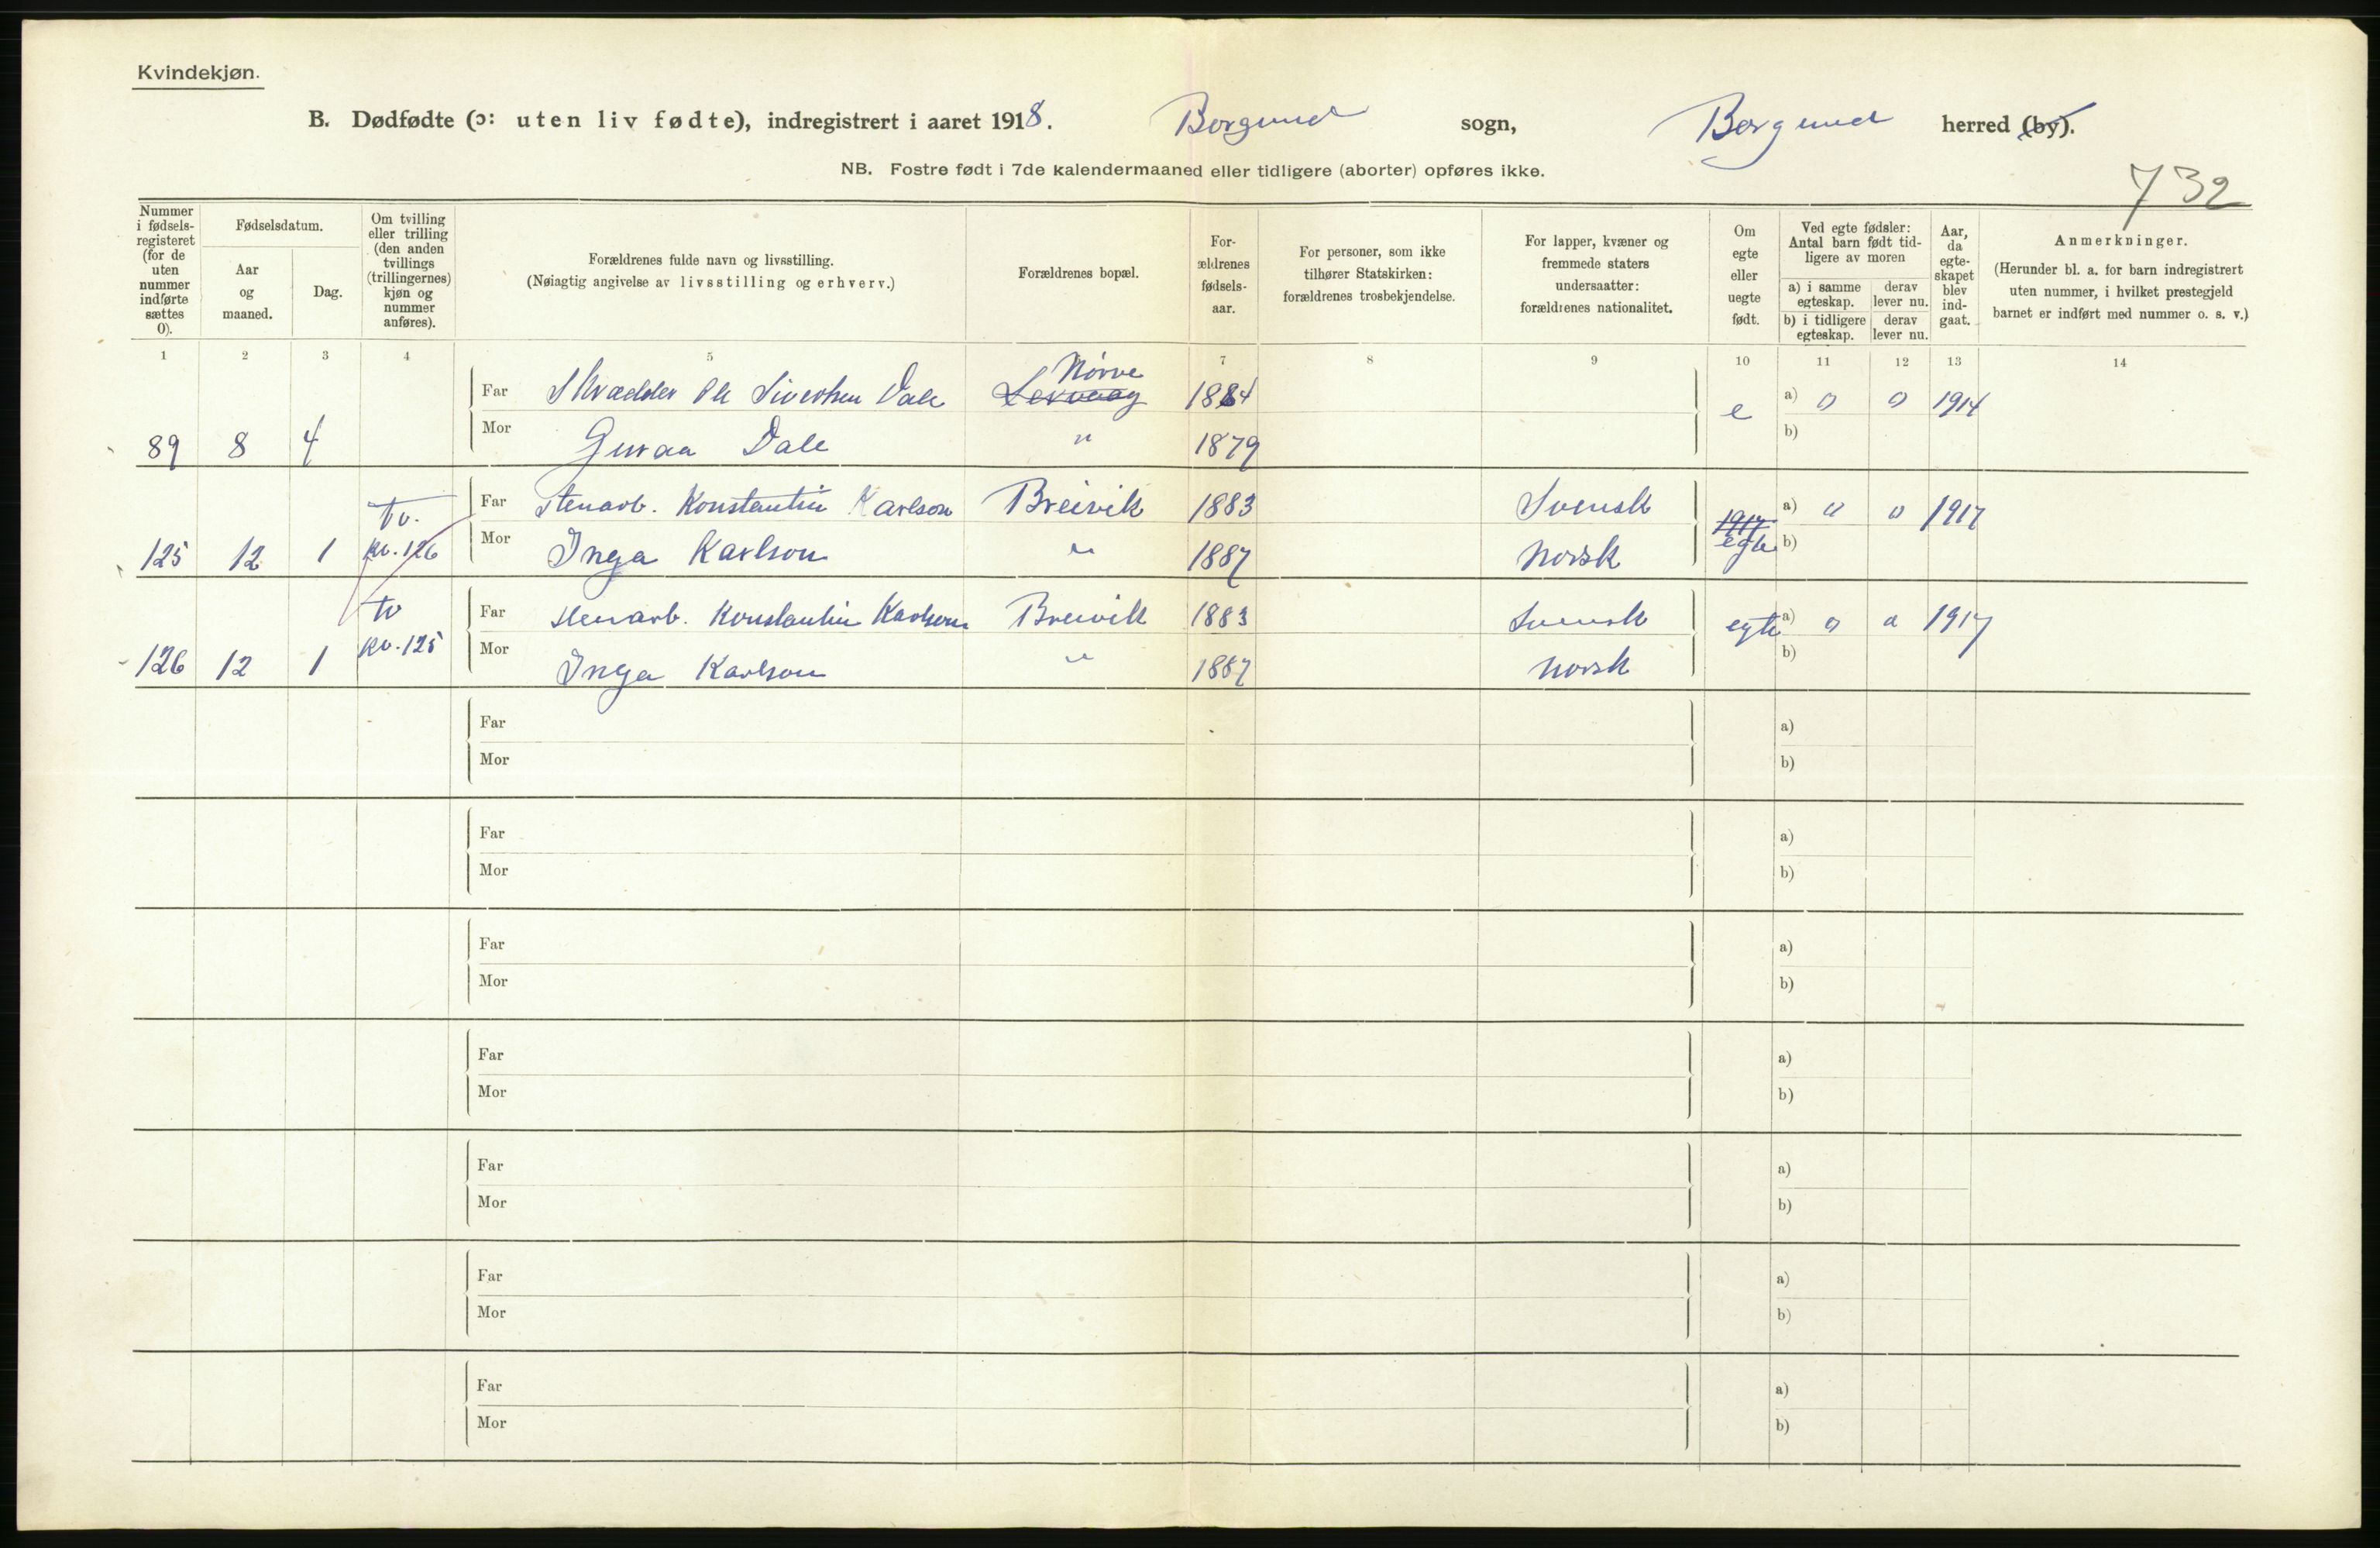 Kvindekjøn.
B. Dødfødte (ɔ: uten liv fødte), indregistrert i aaret 1918. Borgund sogn, Borgund herred (by).
NB. Fostre født i 7de kalendermaaned eller tidligere (aborter) opføres ikke.
732
Nummer i fødsels-registeret (for de uten nummer indførte sættes 0).
Fødselsdatum.
Aar og maaned.
Dag.
Om tvilling eller trilling (den anden tvillings (trillingernes) kjøn og nummer anføres).
Forældrenes fulde navn og livsstilling.
(Nøiagtig angivelse av livsstilling og erhverv.)
Forældrenes bopæl.
For-ældrenes fødsels-aar.
For personer, som ikke tilhører Statskirken: forældrenes trosbekjendelse.
For lapper, kvæner og fremmede staters undersaatter: forældrenes nationalitet.
Om egte eller uegte født.
Ved egte fødsler: Antal barn født tid-ligere av moren
a) i samme egteskap.
derav lever nu.
b) i tidligere egteskap.
derav lever nu.
Aar, da egte-skapet blev ind-gaat.
Anmerkninger.
(Herunder bl. a. for barn indregistrert uten nummer, i hvilket prestegjeld barnet er indført med nummer o. s. v.)
1 2 3 4 5 7 8 9 10 11 12 13 14
Nørve
Far Skrædder Ole Sivertsen Dale 1884 e a) 0 0 1914
89 8 4 Mor Dale " 1879 b)
tv. Far Stenarb. Konstantin Karlson Breivik 1883 Svensk 1917 a) 0 0 1917
125 12 1 kv. 126 Mor Inga Karlson " 1887 Norsk egte b)
tv Far Stenarb. Konstantin Karlson Breivik 1883 Svensk egte a) 0 0 1917
126 12 1 kv. 125 Mor Inga Karlson " 1887 Norsk b)
Far a)
Mor b)
Far a)
Mor b)
Far a)
Mor b)
Far a)
Mor b)
Far a)
Mor b)
Far a)
Mor b)
Far a)
Mor b)